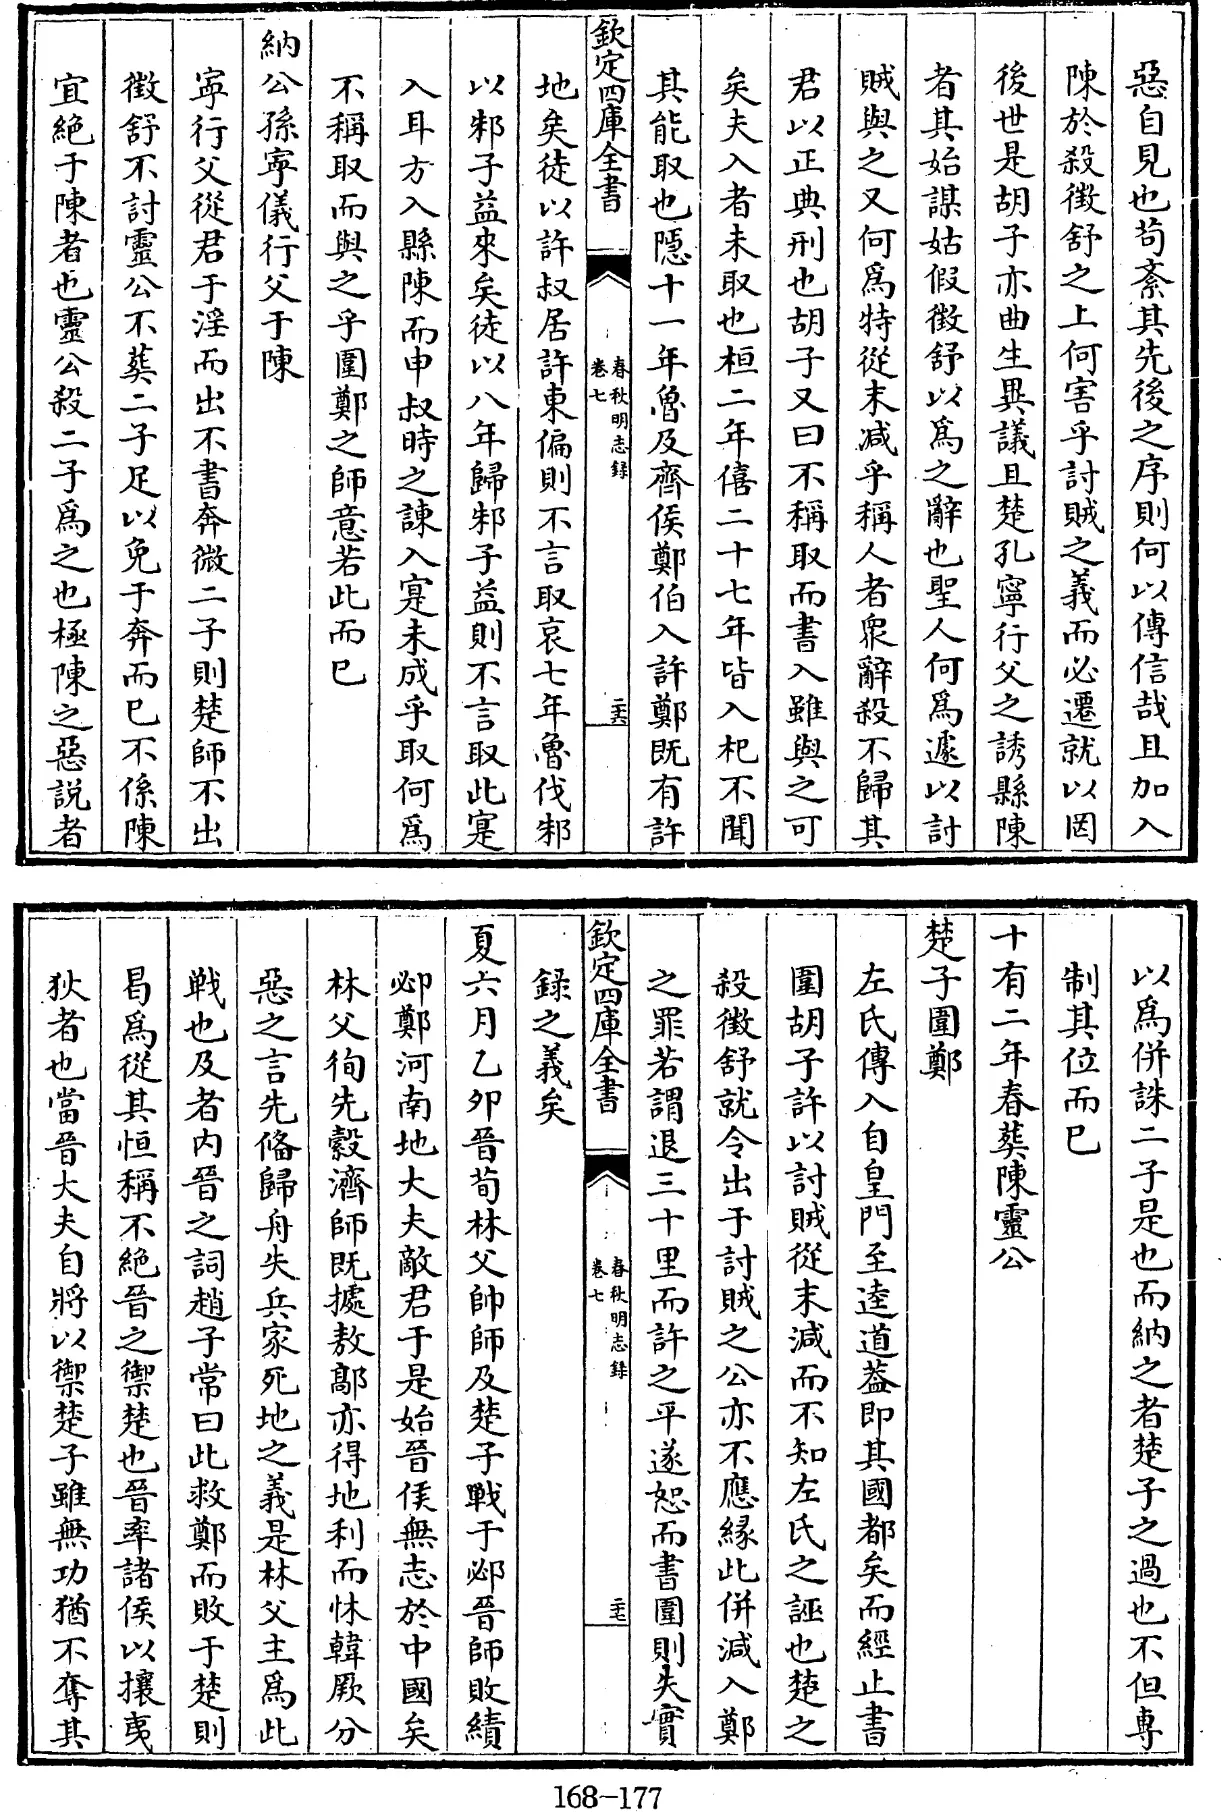 惡自見也苟紊其先後之序則何以傳信哉且加入
陳於殺徵舒之上何害乎討賊之義而必遷就以罔
後世是胡子亦曲生異議且楚孔寧行父之誘縣陳
者其始謀姑假徵舒以為之辭也聖人何為遽以討
賊與之又何為特從末減乎稱人者衆辭殺不歸其
君以正典刑也胡子又曰不稱取而書入雖與之可
矣夫入者未取也桓二年僖二十七年皆入杞不聞
其能取也隱十一年魯及齊侯鄭伯入許鄭既有許
欽定四庫全書
春秋明志錄
卷七
二六
地矣徒以許叔居許東偏則不言取哀七年魯伐邾
以邾子益來矣徒以八年歸邾子益則不言取此寔
入耳方入縣陳而申叔時之諫入寔未成乎取何為
不稱取而與之乎圍鄭之師意若此而已
納公孫寧儀行父于陳
寧行父從君于淫而出不書奔微二子則楚師不出
徵舒不討靈公不葬二子足以免于奔而已不係陳
宜絶于陳者也靈公殺二子為之也極陳之惡説者
以為併誅二子是也而納之者楚子之過也不但專
制其位而已
十有二年春葬陳靈公
楚子圍鄭
左氏傳入自皇門至逵道蓋即其國都矣而經止書
圍胡子許以討賊從末減而不知左氏之誣也楚之
殺徵舒就令出于討賊之公亦不應緣此併減入鄭
之罪若謂退三十里而許之平遂恕而書圍則失實
欽定四庫全書
春秋明志錄
卷七
二七
錄之義矣
夏六月乙卯晉荀林父帥師及楚子戰于邲晉師敗績
邲鄭河南地大夫敵君于是始晉侯無志於中國矣
林父徇先縠濟師既據敖鄗亦得地利而怵韓厥分
惡之言先偹歸舟失兵家死地之義是林父主為此
戰也及者内晉之詞趙子常曰此救鄭而敗于楚則
曷為從其恒稱不絶晉之禦楚也晉率諸侯以攘夷
狄者也當晉大夫自將以禦楚子雖無功猶不奪其
168-177